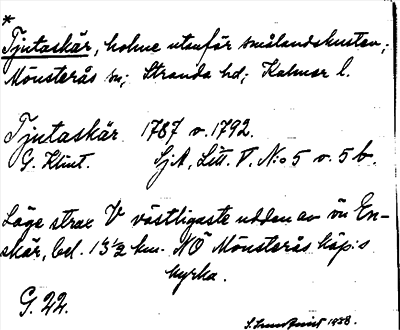 *
Tjutaskär, holme utanför smålandskusten;
Mönsterås sn; Stranda hd; Kalmar l.
Tjutaskär 1787 o. 1792.
G. Klint. SjA, Litt. V. No 5 o. 5 b.
Läge strax V västligaste udden av ön En-
skär, bel. 13½ km. NÖ Mönsterås köp:s
kyrka.
G. 22.
1938.